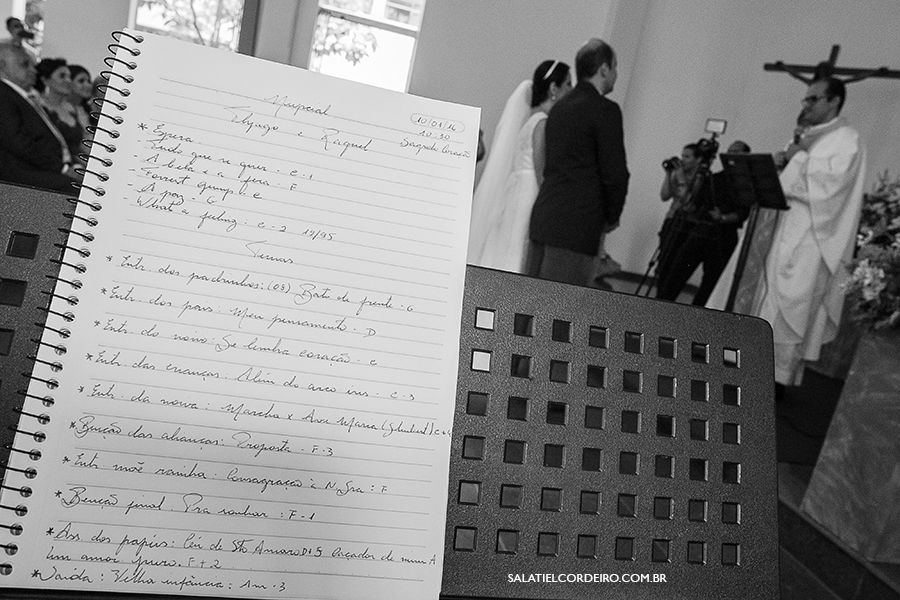 Nupcial
Thyago e Raquel
10/01/16
10:30
Sagrado Coração
* Espera
- Tudo que se quer - C-1
- A bela e a fera - F
- Forrest gump - C
- A paz - G
- What a - C-2 19/95
Temas
* Entr. dos padrinhos: (08) Bate de frente - G
* Entr. dos pais: Meu pensamento - D
* Entr. do noivo: Se tenho coração - C
* Entr. das crianças: Além do arco íris - C-3
* Entr. da noiva: Marcha x Ave Maria (Schubert) C+4
* Benção das alianças: Proposta - F-3
* Entr. mãe rainha: Consagração à N. Sra: F
* Benção final: Pra sonhar: F-1
* Ass. dos papéis: Céu de Sto Amaro D+5 Caçador de mim A
Um amor puro. F+2
* Saída: Velha infância: Am-3
SALATIELCORDEIRO.COM.BR